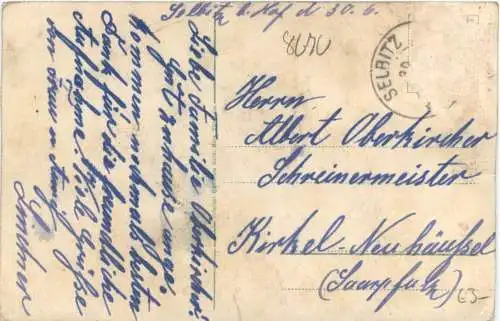 Selbitz b. Hof d. 30. 6.
Liebe Familie Oberkircher!
Gut zuhause ange-
kommen nochmals besten
Dank für die freundliche
Aufnahme. Viele Grüße
SELBITZ
30
Herrn
Albert Oberkircher
Schreinermeister
Kirkel-Neuhäusel
(Saarpfalz)